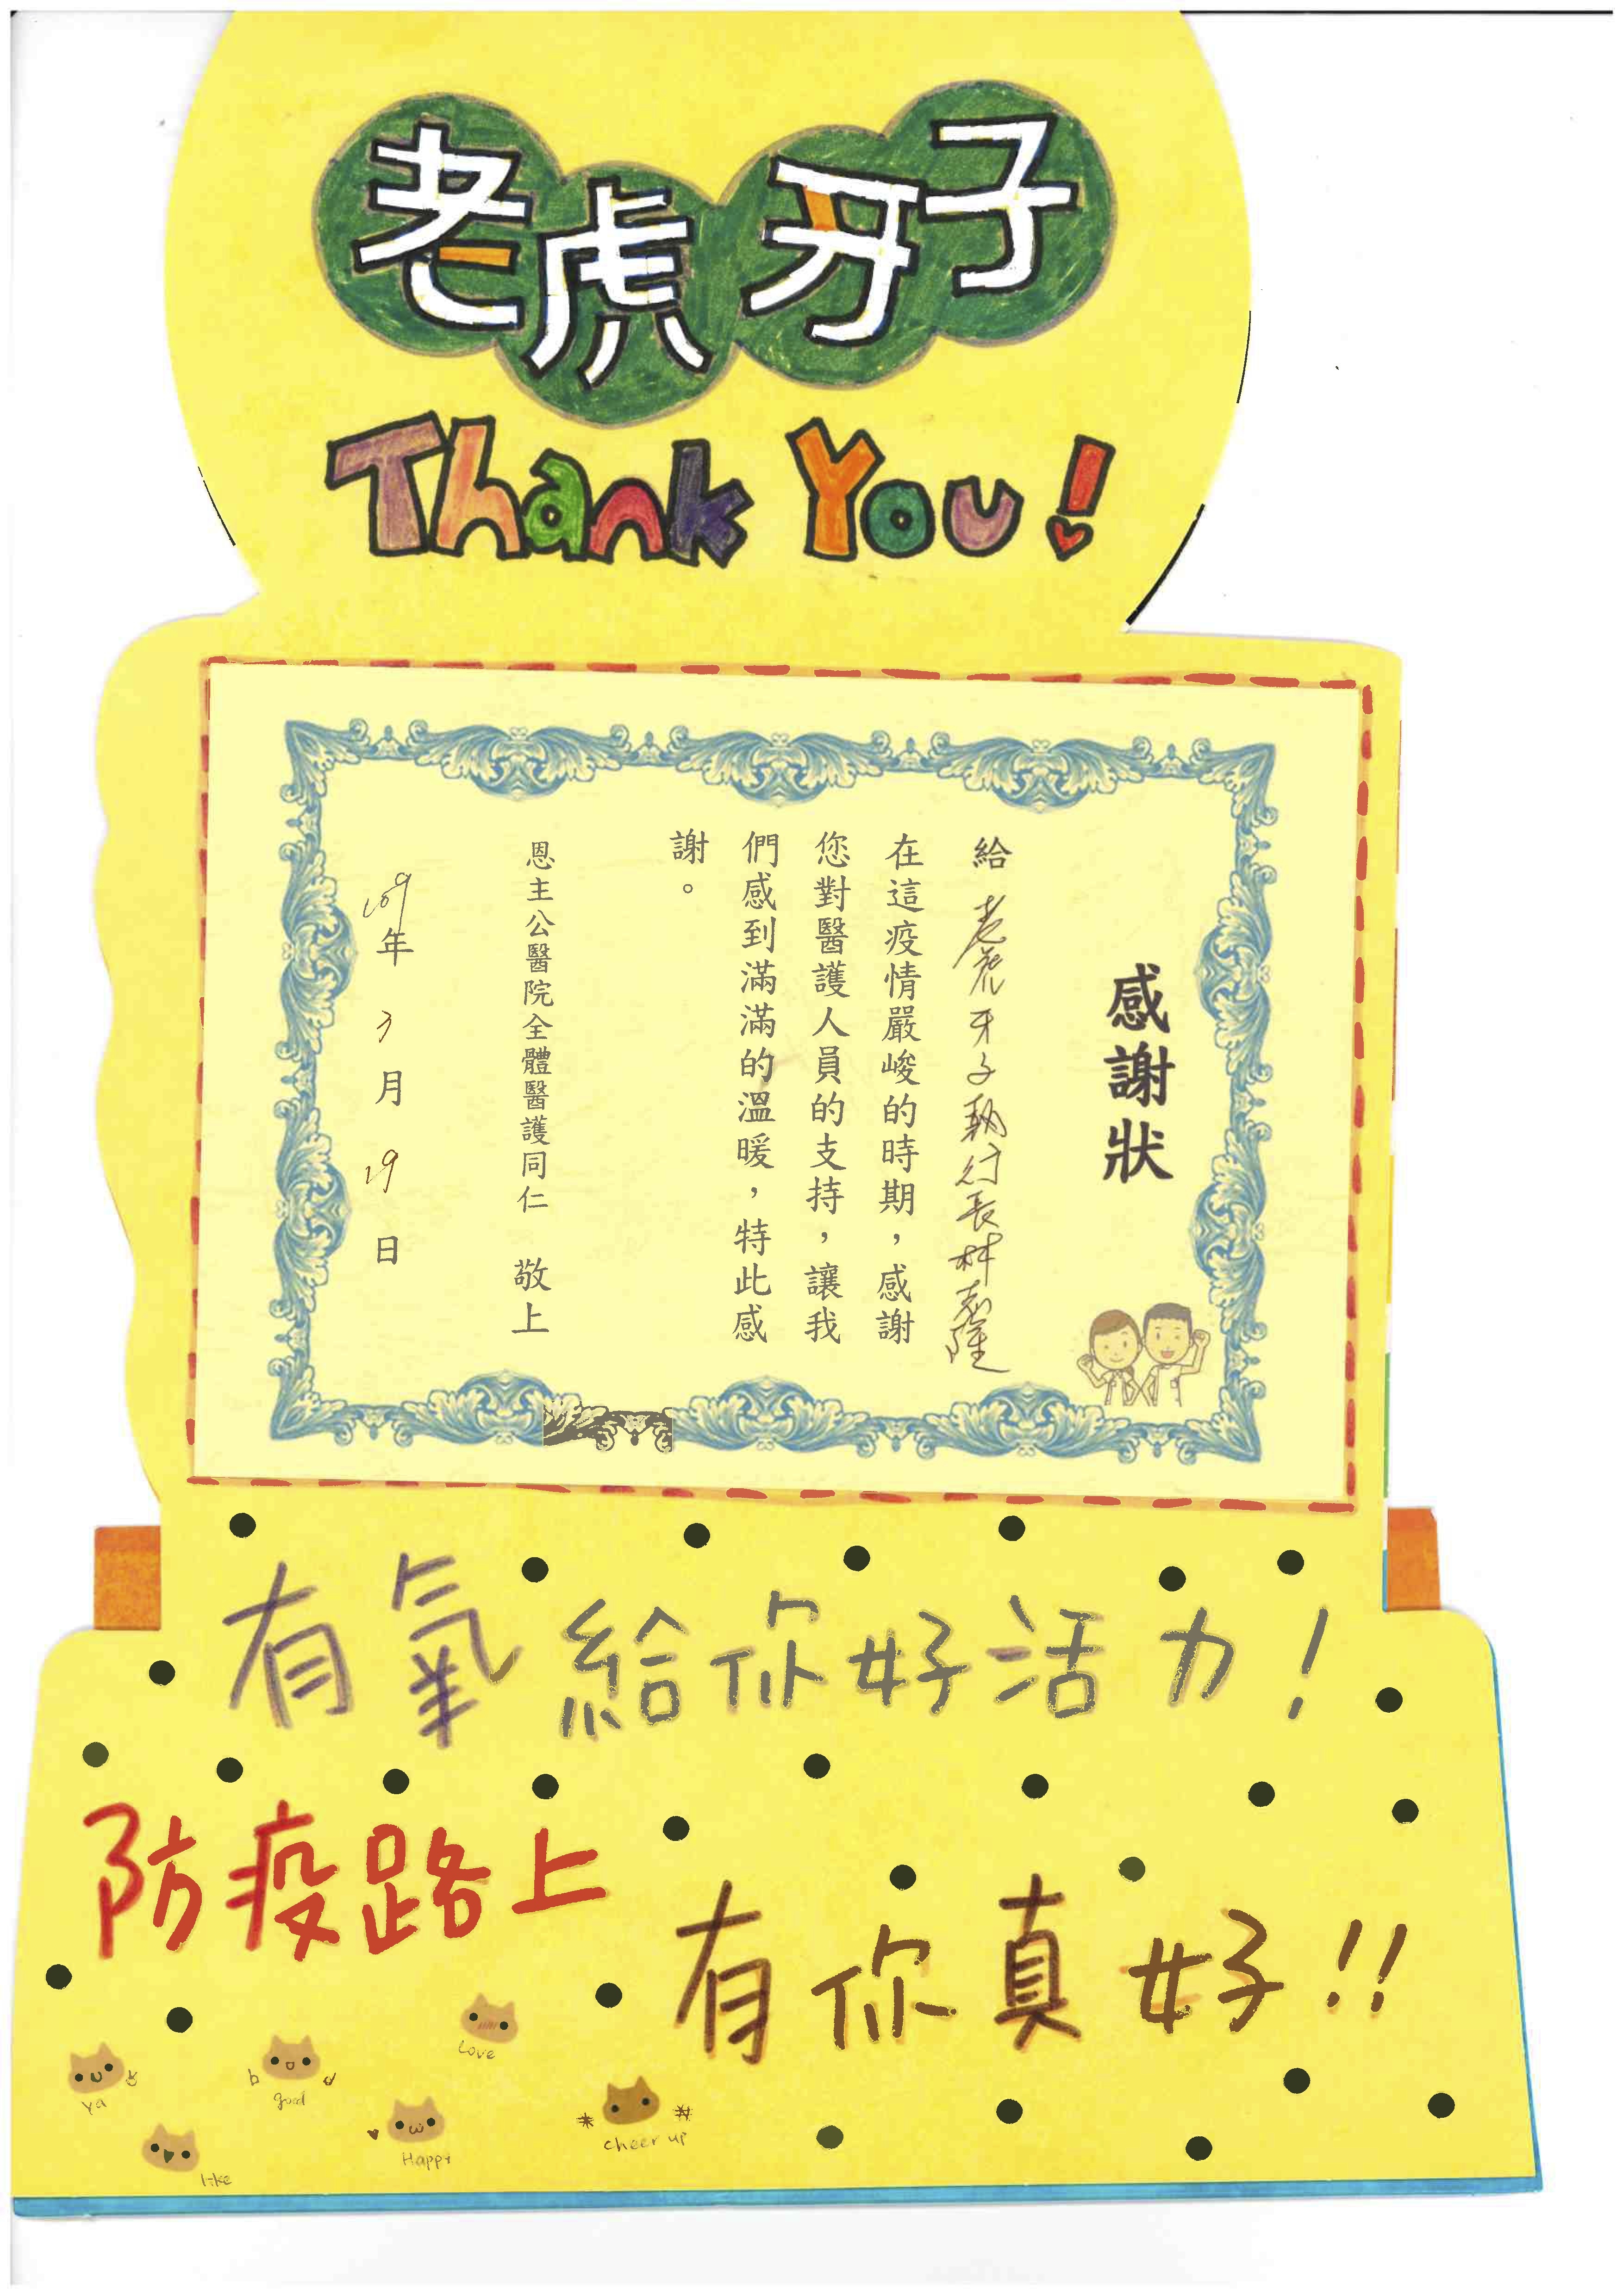 老虎牙子
Thank You!
感謝狀
給 老虎牙子執行長林志隆
在這疫情嚴峻的時期，感謝
您對醫護人員的支持，讓我
們感到滿滿的溫暖，特此感
謝。
恩主公醫院全體醫護同仁 敬上
109年 3月 19日
有氧給你好活力!
防疫路上
有你真好!!
love
ya
good
Happy
cheer up
like